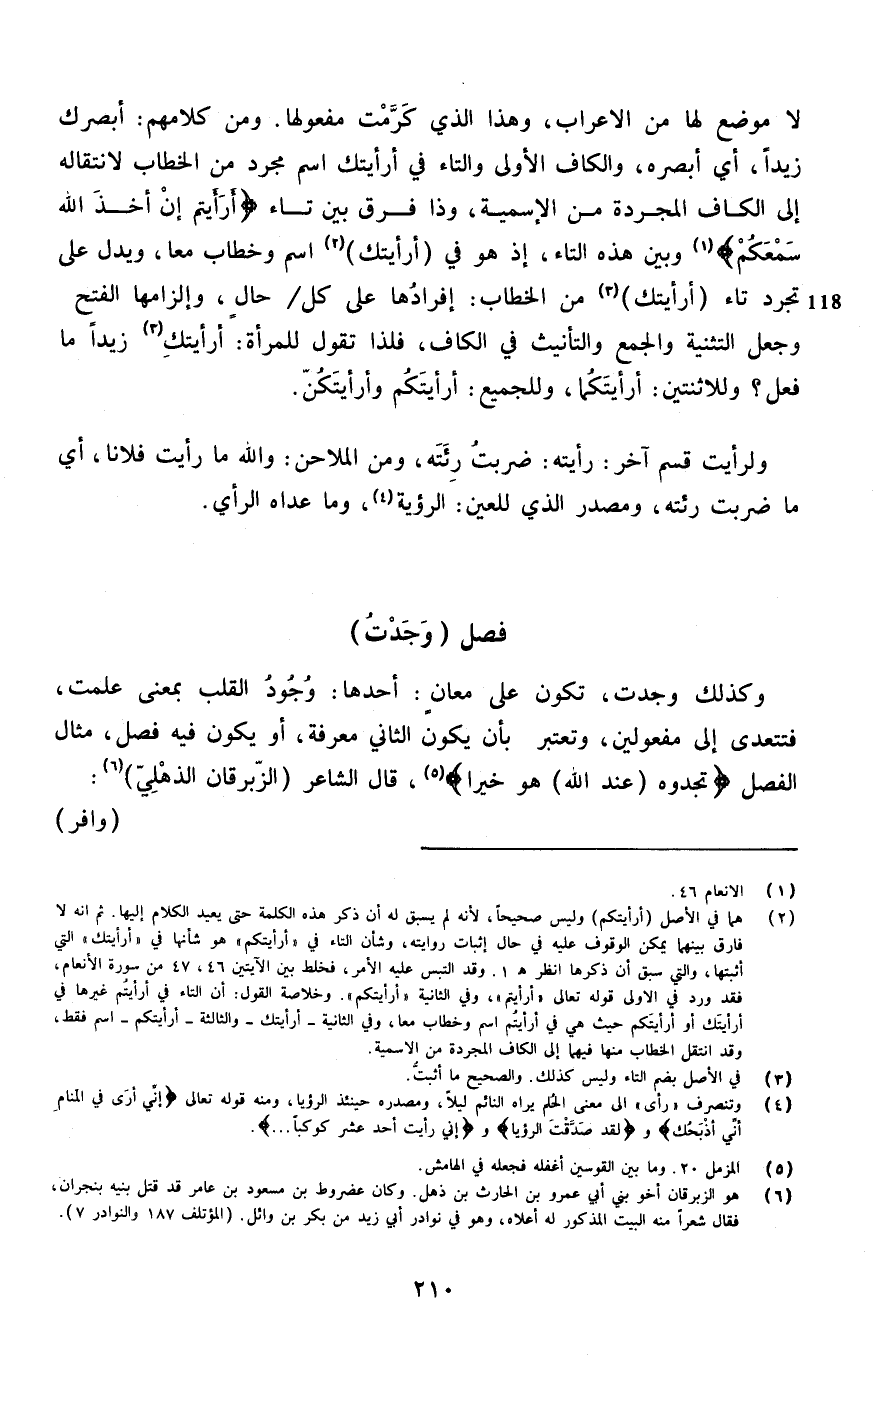 لا موضع لها من الاعراب، وهذا الذي كَرَّمْت مفعولها. ومن كلامهم: أبصرك
زيداً، أي أبصره، والكاف الأولى والتاء في أرأيتك اسم مجرد من الخطاب لانتقاله
إلى الكاف المجردة من الإسمية، وذا فرق بين تاء ﴿أَرَأَيتم إنْ أخذَ الله
سَمْعَكُمْ﴾(١) وبين هذه التاء، إذ هو في (أرأيتك)(٢) اسم وخطاب معا، ويدل على
118 تجرد تاء (أرأيتك)(٣) من الخطاب: إفرادُها على كل/ حالٍ، وإلزامها الفتح
وجعل التثنية والجمع والتأنيث في الكاف، فلذا تقول للمرأة: أرأيتكِ(٣) زيداً ما
فعل؟ وللاثنتين: أرأيتَكُما، وللجميع: أرأيتَكُم وأرأيتَكُنّ.
ولرأيت قسم آخر: رأيته: ضربتُ رِئَتَه، ومن الملاحن: والله ما رأيت فلانا، أي
ما ضربت رئته، ومصدر الذي للعين: الرؤية(٤)، وما عداه الرأي.
فصل (وَجَدْتُ)
وكذلك وجدت، تكون على معانٍ: أحدها: وُجُودُ القلب بمعنى علمت،
فتتعدى إلى مفعولين، وتعتبر بأن يكون الثاني معرفة، أو يكون فيه فصل، مثال
الفصل ﴿تجدوه (عند الله) هو خيرا﴾(٥)، قال الشاعر (الزّبرقان الذهْلِيّ)(٦):
(وافر)
(١) الانعام ٤٦.
(٢) هما في الأصل (أرأيتكم) وليس صحيحاً، لأنه لم يسبق له أن ذكر هذه الكلمة حتى يعيد الكلام إليها. ثم انه لا
فارق بينهما يمكن الوقوف عليه في حال إثبات روايته، وشأن التاء في «أرأيتكم» هو شأنها في «أرأيتك» التي
أثبتها، والتي سبق أن ذكرها انظر هـ ١. وقد التبس عليه الأمر، فخلط بين الآيتين ٤٦، ٤٧ من سورة الأنعام،
فقد ورد في الاولى قوله تعالى «أرأيتم»، وفي الثانية «أرأيتكم». وخلاصة القول: أن التاء في أرأيتُم غيرها في
أرأيتَك أو أرأيتَكم حيث هي في أرأيتُم اسم وخطاب معا، وفي الثانية ـ أرأيتك ـ والثالثة ـ أرأيتكم ـ اسم فقط،
وقد انتقل الخطاب منها فيهما إلى الكاف المجردة من الاسمية.
(٣) في الأصل بضم التاء وليس كذلك. والصحيح ما أثبتُّ.
(٤) وتنصرف «رأى» الى معنى الحُلم يراه النائم ليلاً، ومصدره حينئذ الرؤيا، ومنه قوله تعالى ﴿إنّي أرَى في المنامِ
أنّي أذْبَحُك﴾ و ﴿لقد صَدَّقْتَ الرؤيا﴾ و ﴿إني رأيت أحد عشر كوكباً...﴾.
(٥) المزمل ٢٠. وما بين القوسين أغفله فجعله في الهامش.
(٦) هو الزبرقان أخو بني أبي عمرو بن الحارث بن ذهل. وكان عضروط بن مسعود بن عامر قد قتل بنيه بنجران،
فقال شعراً منه البيت المذكور له أعلاه، وهو في نوادر أبي زيد من بكر بن وائل. (المؤتلف ١٨٧ والنوادر ٧).
٢١٠